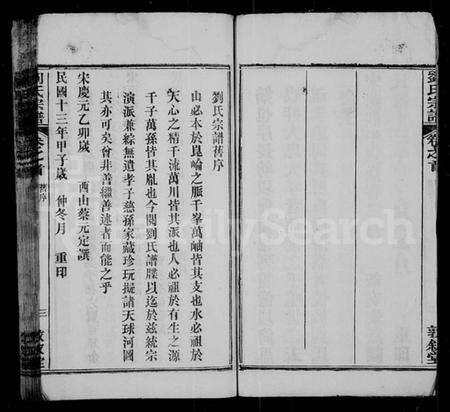 劉氏宗譜
卷之首
敦敘堂
劉氏宗譜舊序
山必本於崑崙之脈千峯萬岫皆其支也水必祖於
天心之精千流萬川皆其派也人必祖於有生之源
千子萬孫皆其胤也今閱劉氏譜牒以迄於茲統宗
演派兼綜無遺孝子慈孫家藏珍玩擬諸天球河圖
其亦可矣曾非善繼善述者而能之乎
宋慶元乙卯歲 西山蔡元定譔
民國十三年甲子歲 仲冬月 重印
劉氏宗譜
卷之首
舊序
三
敦敘堂
FamilySearch